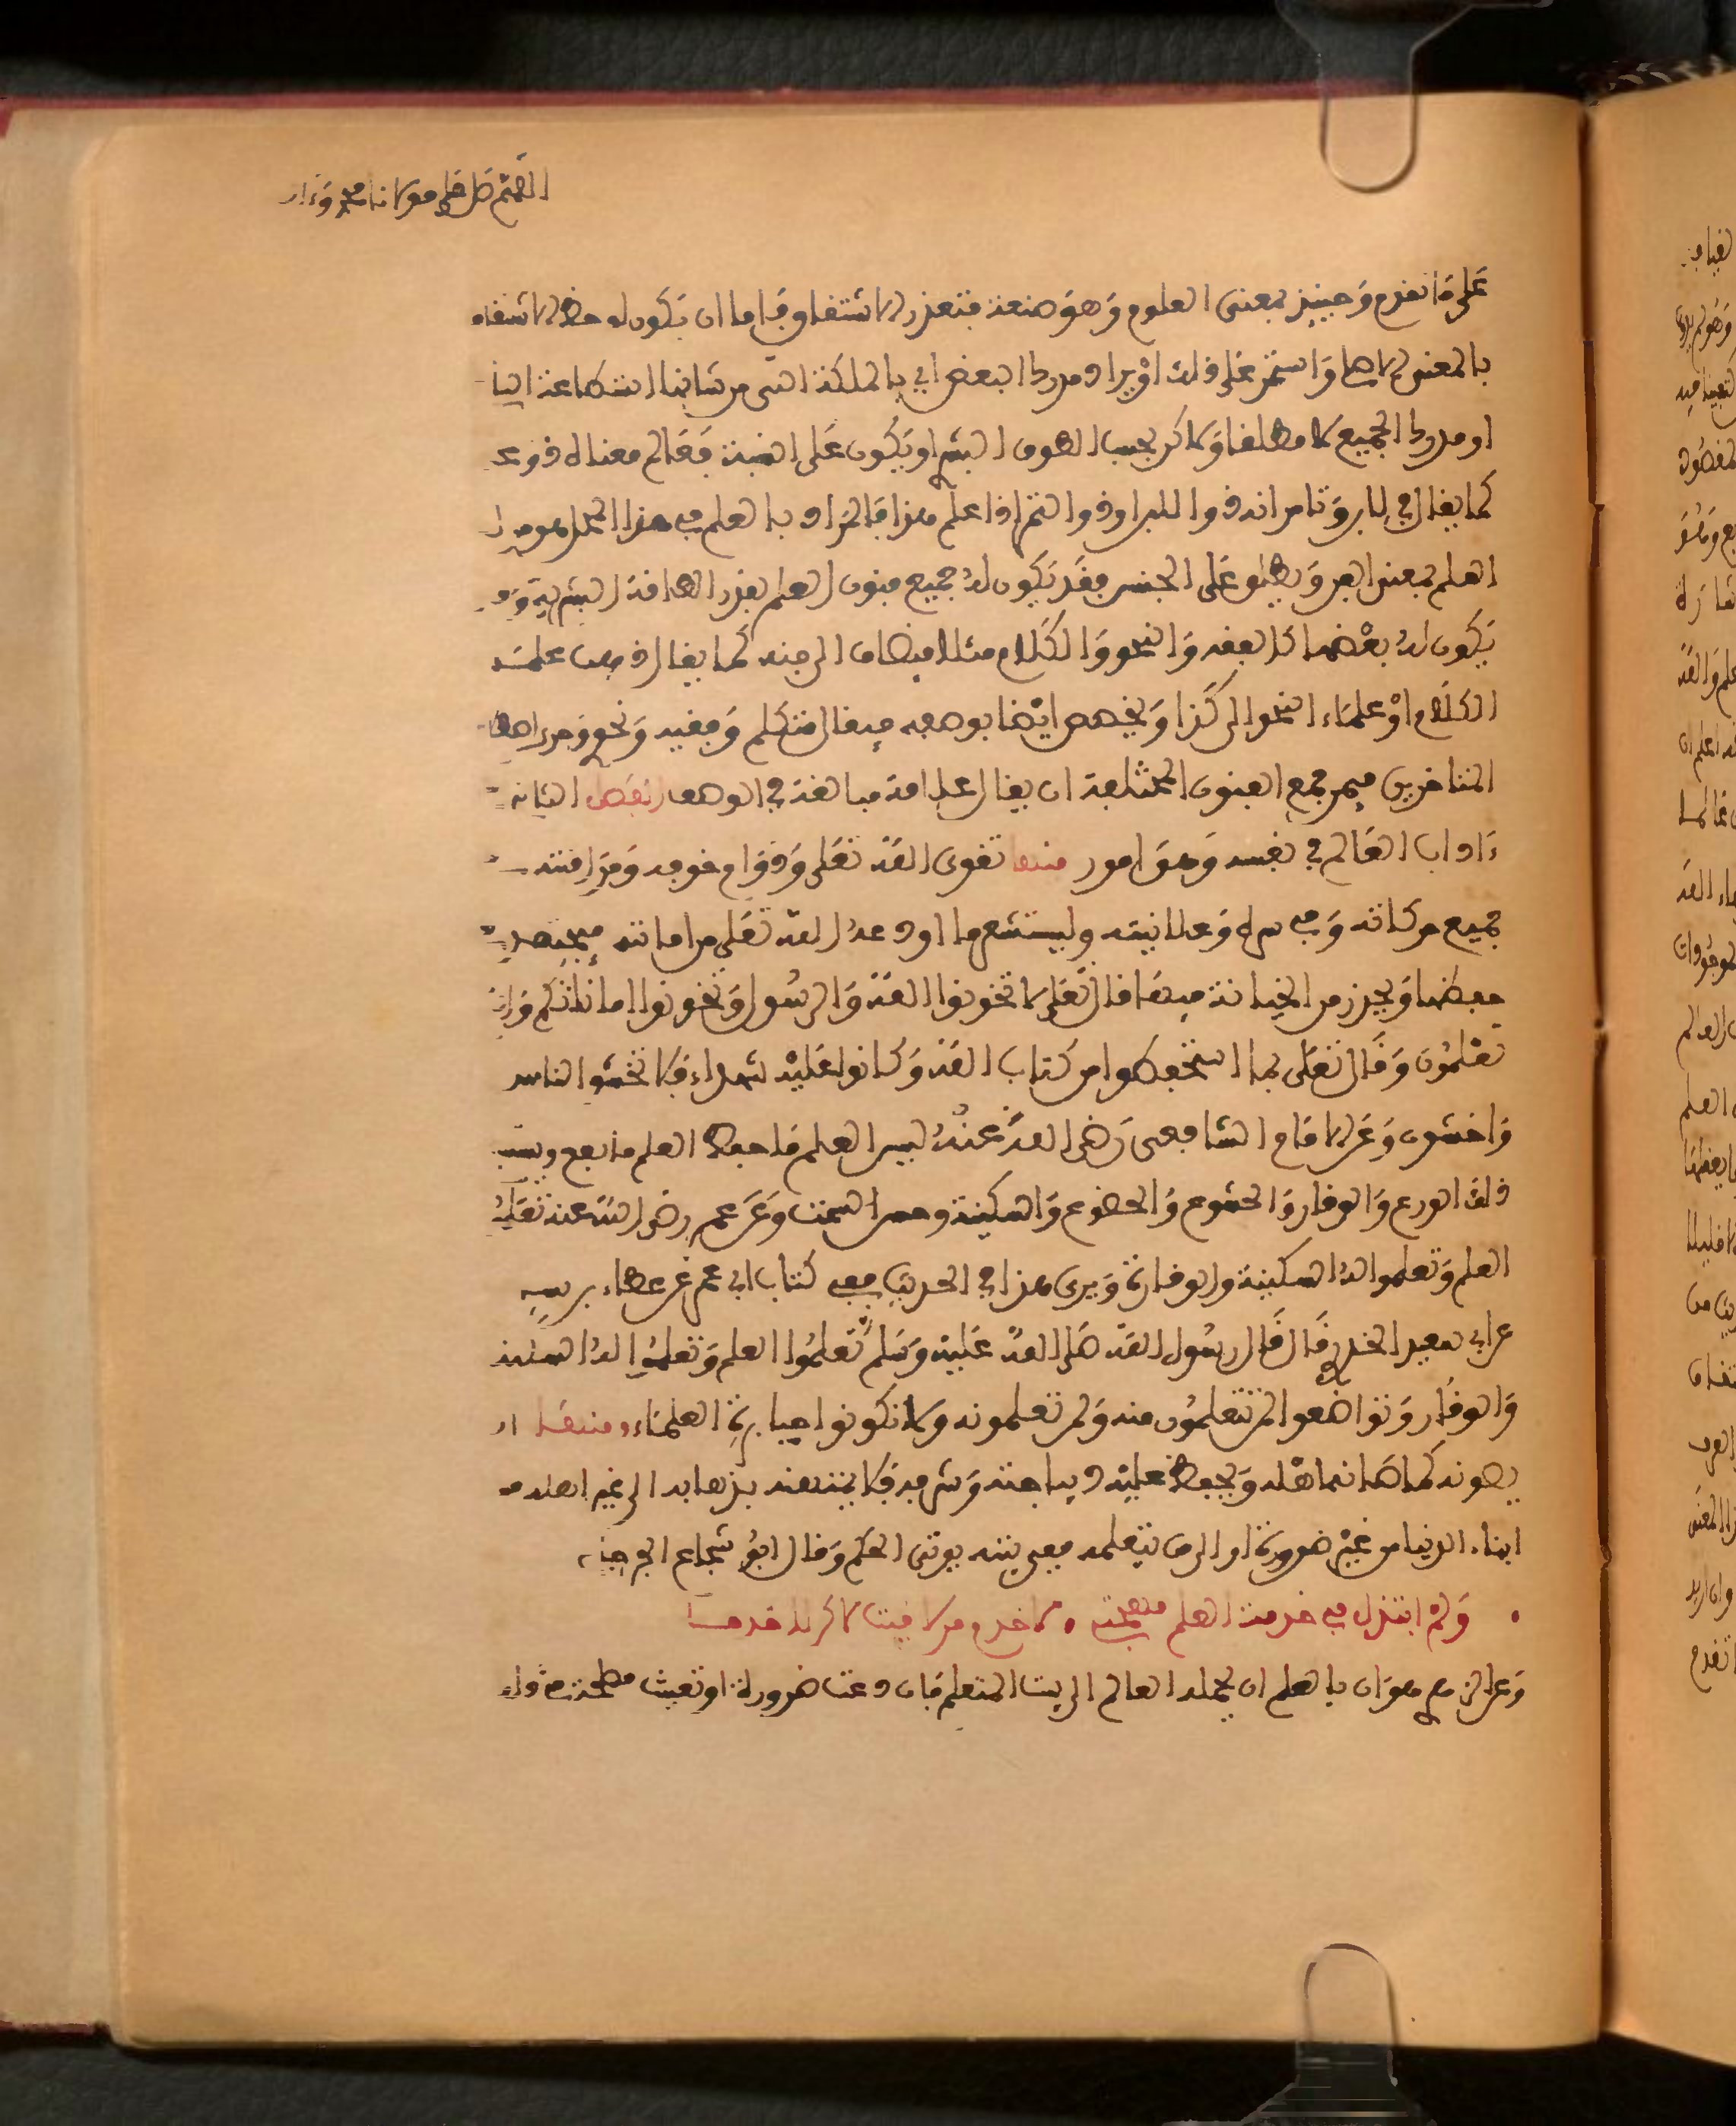 اللهم صل على مولانا محمد وءال
على ما تقدم وحينئذ بمعنى العلوم وهو صنعة فتعذر الاشتقاق فاما ان يكون لوحظ الاشتقاق
بالمعنى الاصلي واستمر على ذلك او يراد مدرك البعض اي بالملكة التي من شانها استطاعة
او مدرك الجميع لا مطلقا ولاكن بحسب الطوق البشري او يكون على النسبة فعالم معناه ذو علم
كما يقال في لابن وتامر انه ذو اللبن او ذو التمر اذا علم هذا فالمراد بالعلم في هذا المحل هو
العلم بمعنى الفن ويطلق على الجنس فقد يكون له جميع فنون العلم بقدر الطاقة البشرية وقد
يكون له بعضها كالفقه والنحو والكلام مثلا فيضاف الى فنه كما يقال ذهبت علماء
الكلام او علماء النحو الى كذا ويخصص ايضا بوصفه فيقال متكلم وفقيه ونحوي ومن اصطلاح
المتاخرين فيمن جمع الفنون المختلفة ان يقال علامة مبالغة في الوصف الفصل الثاني
ءاداب العالم في نفسه وهو امور منها تقوى الله تعلى ودوام خوفه ومراقبته
جميع حركاته وفي سره وعلانيته وليستشعر ما اودعه الله تعلى من اماناته فيجتهد
حفظها ويحذر من الخيانة فيها قال تعلى لا تخونوا الله والرسول وتخونوا اماناتكم وانتم
تعلمون وقال تعلى بما استحفظوا من كتاب الله وكانوا عليه شهداء فلا تخشوا الناس
واخشون وعن الامام الشافعي رضي الله عنه ليس العلم ما حفظ العلم ما نفع وسبب
ذلك الورع والوقار والخشوع والخضوع والسكينة وحسن السمت وعن عمر رضي الله عنه تعلموا
العلم وتعلموا له السكينة والوقار ويرى هذا في الحديث ففي كتاب ابي عمر عن عطاء بن يسار
عن ابي سعيد الخدري قال قال رسول الله صلى الله عليه وسلم تعلموا العلم وتعلموا له السكينة
والوقار وتواضعوا لمن تتعلمون منه ولمن تعلمونه ولا تكونوا جبابرة العلماء ومنها ان
يصونه كما صانها اهله ويحفظ عليه ديباجته وشرفه فلا يمتهنه بذهابه الى غير اهله من
ابناء الدنيا من غير ضرورة او الى من يتعلمه ففي بيته يوتى الحكم وقال ابو شجاع الجرجاني
ولم ابتذل في خدمة العلم مهجتي لاخدم من لاقيت لاكن لاخدما
وعن الزهري هوان بالعلم ان يحمله العالم الى بيت المتعلم فان دعت ضرورة او تعينت مصلحة